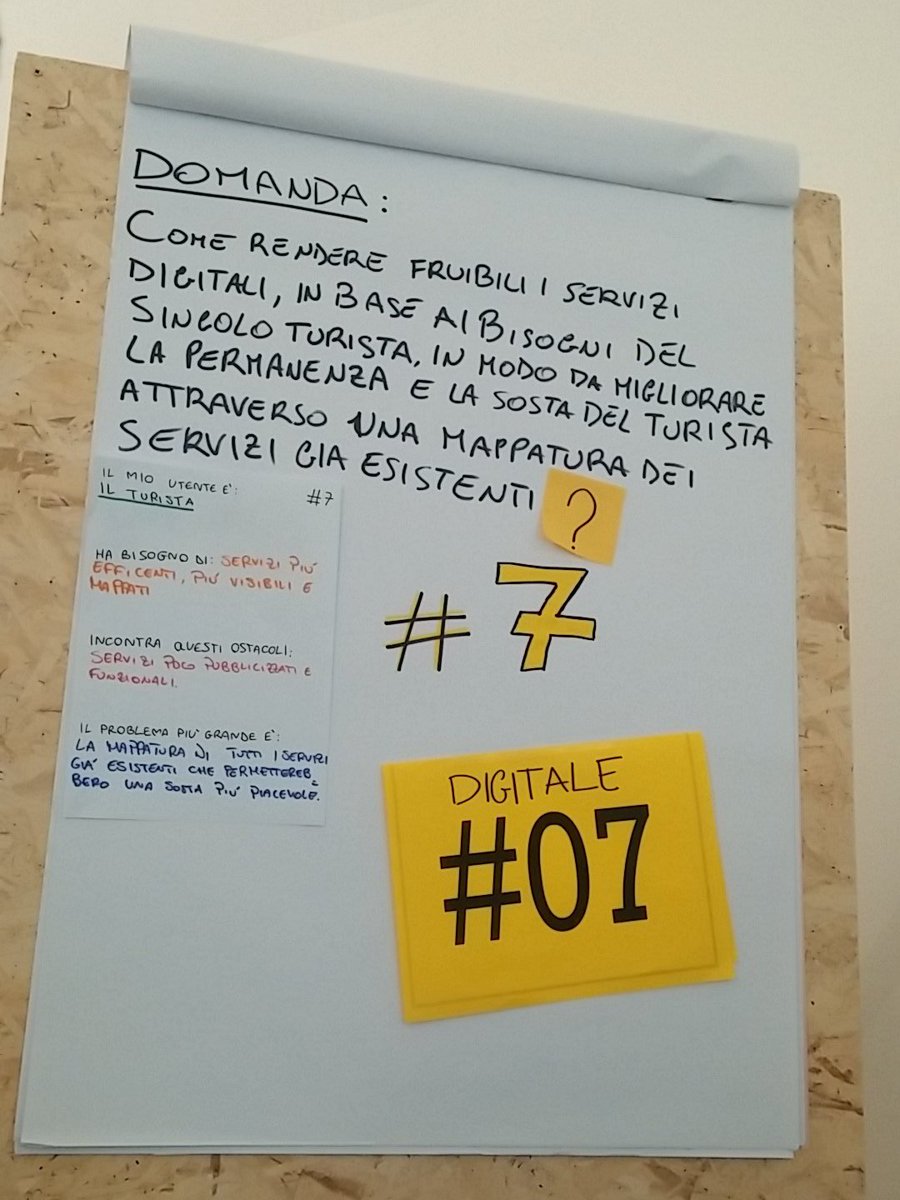 DOMANDA:
COME RENDERE FRUIBILI I SERVIZI
DIGITALI, IN BASE AI BISOGNI DEL
SINGOLO TURISTA, IN MODO DA MIGLIORARE
LA PERMANENZA E LA SOSTA DEL TURISTA
ATTRAVERSO UNA MAPPATURA DEI
SERVIZI GIA ESISTENTI ?
IL MIO UTENTE E':
IL TURISTA
#7
HA BISOGNO DI: SERVIZI PIU'
EFFICENTI, PIU' VISIBILI E
MAPPATI
INCONTRA QUESTI OSTACOLI:
SERVIZI POCO PUBBLICIZZATI E
FUNZIONALI.
IL PROBLEMA PIU' GRANDE E':
LA MAPPATURA DI TUTTI I SERVIZI
GIA' ESISTENTI CHE PERMETTEREB=
BERO UNA SOSTA PIU' PIACEVOLE.
#7
DIGITALE
#07